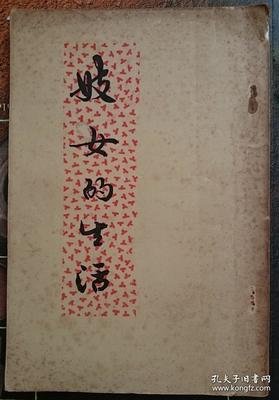 妓女的生活
孔夫子旧书网
www.kongfz.com